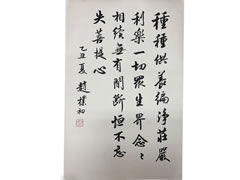 種種供養徧淨莊嚴
利樂一切眾生界念〻
相續無有間斷恒不忘
失菩提心
乙丑夏 趙樸初